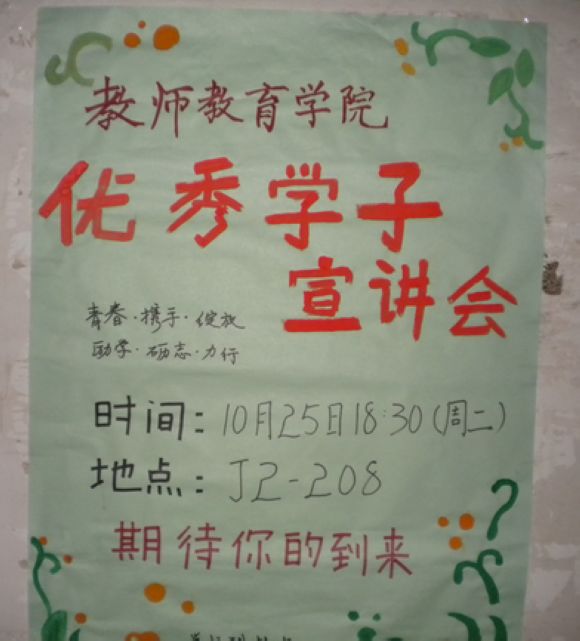 教师教育学院
优秀学子
宣讲会
青春·携手·绽放
励学·砺志·力行
时间：10月25日18:30(周二)
地点：J2-208
期待你的到来